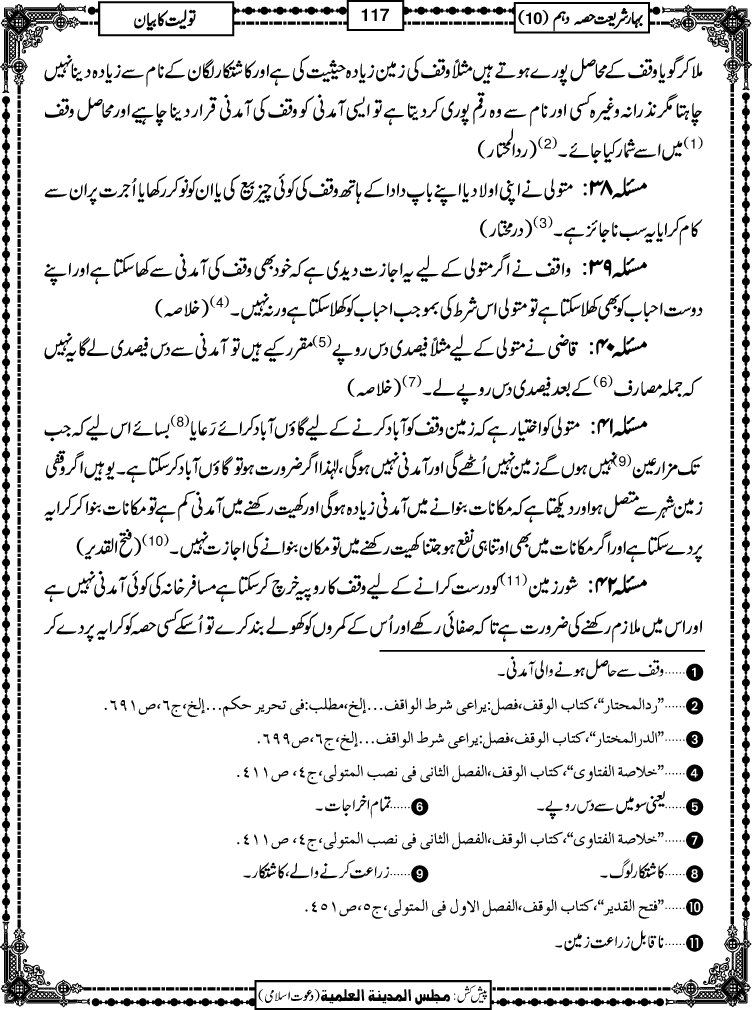 بہارشریعت حصہ دہم (10)
117
تولیت کا بیان
ملاکر گویا وقف کے محاصل پورے ہوتے ہیں مثلاً وقف کی زمین زیادہ حیثیت کی ہے اور کاشتکار لگان کے نام سے زیادہ دینا نہیں
چاہتا مگر نذرانہ وغیرہ کسی اور نام سے وہ رقم پوری کر دیتا ہے تو ایسی آمدنی کو وقف کی آمدنی قرار دینا چاہیے اور محاصل وقف
(1) میں اسے شمار کیا جائے۔ (2) (ردالمحتار)
مسئلہ ۳۸: متولی نے اپنی اولاد یا اپنے باپ دادا کے ہاتھ وقف کی کوئی چیز بیع کی یا ان کو نوکر رکھا یا اُجرت پر ان سے
کام کرایا یہ سب ناجائز ہے۔ (3) (درمختار)
مسئلہ ۳۹: واقف نے اگر متولی کے لیے یہ اجازت دیدی ہے کہ خود بھی وقف کی آمدنی سے کھا سکتا ہے اور اپنے
دوست احباب کو بھی کھلا سکتا ہے تو متولی اس شرط کی بموجب احباب کو کھلا سکتا ہے ورنہ نہیں۔ (4) (خلاصہ)
مسئلہ ۴۰: قاضی نے متولی کے لیے مثلاً فیصدی دس روپے (5) مقرر کیے ہیں تو آمدنی سے دس فیصدی لے گا یہ نہیں
کہ جملہ مصارف (6) کے بعد فیصدی دس روپے لے۔ (7) (خلاصہ)
مسئلہ ۴۱: متولی کو اختیار ہے کہ زمین وقف کو آباد کرنے کے لیے گاؤں آباد کرائے رَعایا (8) بسائے اس لیے کہ جب
تک مزارعین (9) نہیں ہوں گے زمین نہیں اُٹھے گی اور آمدنی نہیں ہوگی، لہٰذا اگر ضرورت ہو تو گاؤں آباد کرسکتا ہے۔ یوہیں اگر وقفی
زمین شہر سے متصل ہو اور دیکھتا ہے کہ مکانات بنوانے میں آمدنی زیادہ ہوگی اور کھیت رکھنے میں آمدنی کم ہے تو مکانات بنوا کر کرایہ
پر دے سکتا ہے اور اگر مکانات میں بھی اوتنا ہی نفع ہو جتنا کھیت رکھنے میں تو مکان بنوانے کی اجازت نہیں۔ (10) (فتح القدیر)
مسئلہ ۴۲: شور زمین (11) کو درست کرانے کے لیے وقف کا روپیہ خرچ کرسکتا ہے مسافر خانہ کی کوئی آمدنی نہیں ہے
اور اس میں ملازم رکھنے کی ضرورت ہے تا کہ صفائی رکھے اور اُس کے کمروں کو کھولے بند کرے تو اُسکے کسی حصہ کو کرایہ پر دے کر
1 ......وقف سے حاصل ہونے والی آمدنی۔
2 ......”ردالمحتار“، کتاب الوقف، فصل: یراعی شرط الواقف...إلخ، مطلب: فی تحریر حکم...إلخ، ج٦، ص٦٩١.
3 ......”الدرالمختار“، کتاب الوقف، فصل: یراعی شرط الواقف...إلخ، ج٦، ص٦٩٩.
4 ......”خلاصۃ الفتاوی“، کتاب الوقف، الفصل الثانی فی نصب المتولی، ج٤، ص٤١١.
5 ......یعنی سو میں سے دس روپے۔ 6 ......تمام اخراجات۔
7 ......”خلاصۃ الفتاوی“، کتاب الوقف، الفصل الثانی فی نصب المتولی، ج٤، ص٤١١.
8 ......کاشتکار لوگ۔ 9 ......زراعت کرنے والے، کاشتکار۔
10 ......”فتح القدیر“، کتاب الوقف، الفصل الاول فی المتولی، ج٥، ص٤٥١.
11 ......ناقابل زراعت زمین۔
پیش کش: مجلس المدینة العلمیة (دعوت اسلامی)